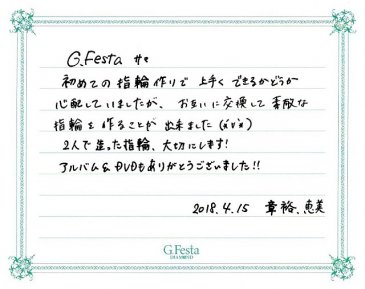 G.Festa 様
初めての指輪作りで上手くできるかどうか
心配していましたが、お互いに交換して素敵な
指輪を作ることが出来ました(*'∨'*)
2人で造った指輪、大切にします!
アルバム&DVDもありがとうございました!!
2018.4.15 章裕、恵美
G.Festa
DIAMOND